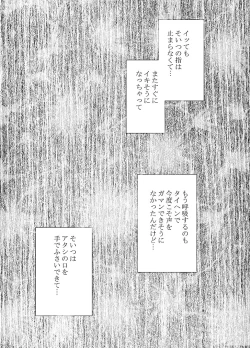 イッても
そいつの指は
止まらなくて…
またすぐに
イキそうに
なっちゃって
もう呼吸するのも
タイヘンで
今度こそ声を
ガマンできそうに
なかったんだけど…
そいつは
アタシの口を
手でふさいできて…